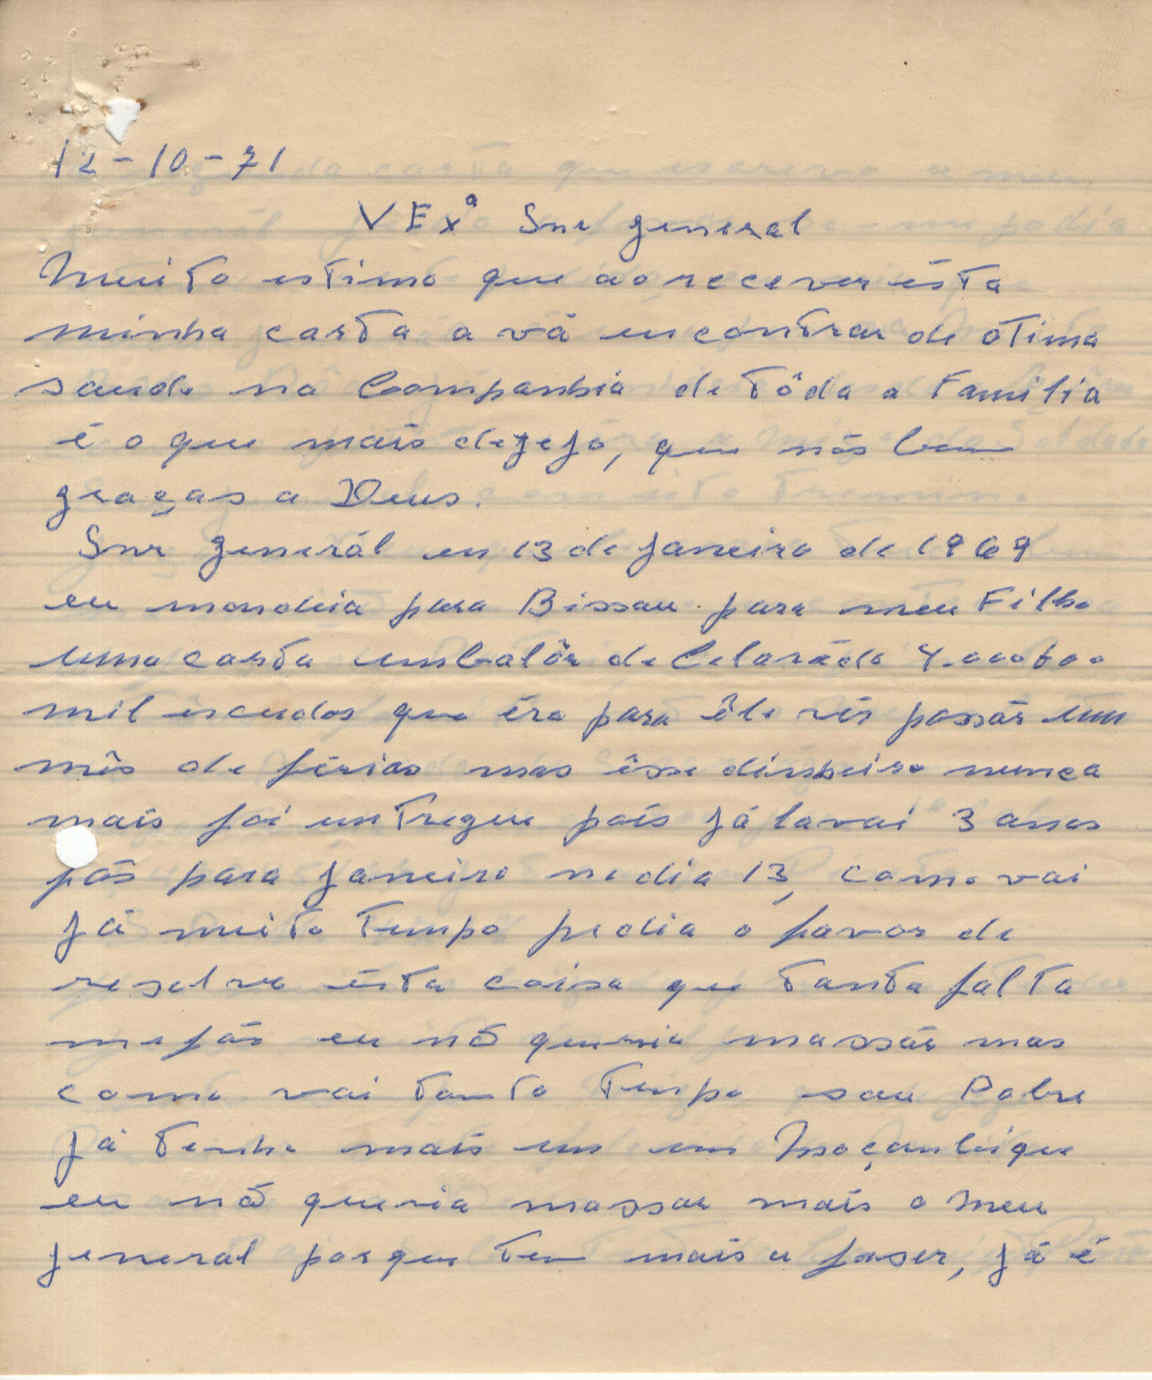 12-10-71
VExª Snr general
Muito estimo que ao recever ésta
minha carta a vá encontrar de ótima
saude na Companhia de tôda a Familia
é o que mais dezejo, que nós bem
graças a Deus.
Snr generál en 13 de janeiro de 1969
eu mandeia para Bissau para meu Filho
uma carta umbalôr de Celarádo 4.000600
mil escudos que éra para êle vir passár um
mês de férias mas êsse dinheiro nunca
mais foi entregue pois já lavai 3 anos
pás para janeiro no dia 13, como vai
já muito tempo pedia o favor de
resolve ésta coisa que tanta falta
me fás eu nã queria massár mas
como vai tanto tempo sou Pobre
já tenho mais um em Moçanbique
eu nã queria massar mais o meu
general porque tem mais u faser, já é